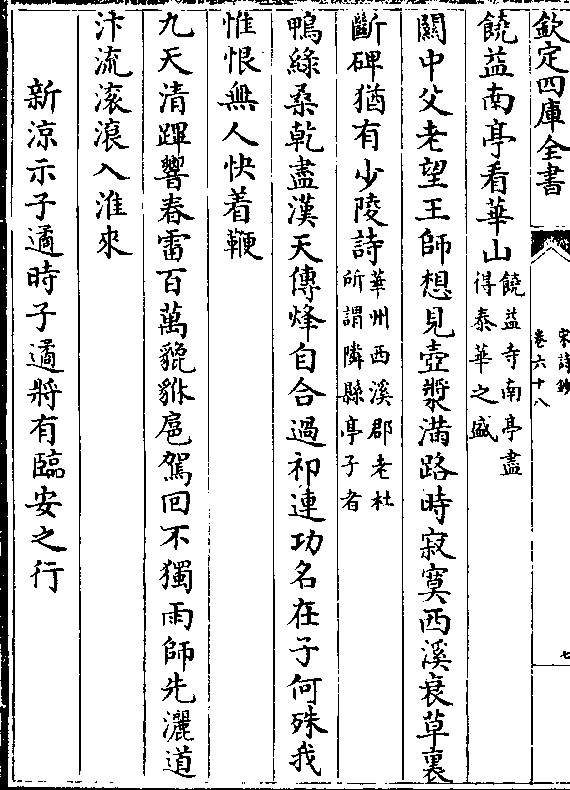 欽定四庫全書
宋詩鈔
卷六十八
七
饒益南亭看華山饒益寺南亭盡
得泰華之盛
關中父老望王師想見壺漿滿路時寂寞西溪衰草裏
斷碑猶有少陵詩華州西溪郡老杜
所謂隣縣亭子者
鴨綠桑乾盡漢天傳烽自合過祁連功名在子何殊我
惟恨無人快着鞭
九天清蹕響春雷百萬貔貅扈駕回不獨雨師先灑道
汴流滾滾入淮來
新涼示子遹時子遹將有臨安之行